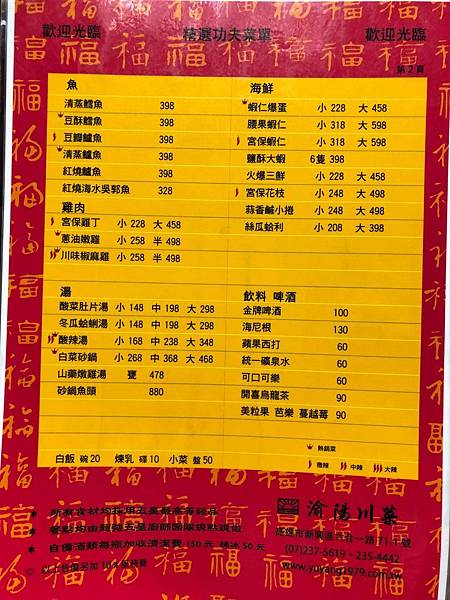 歡迎光臨 精選功夫菜單 歡迎光臨
第2頁
魚
清蒸鱈魚 398
豆酥鱈魚 398
豆瓣鱸魚 398
清蒸鱸魚 398
紅燒鱸魚 398
紅燒海水吳郭魚 328
雞肉
宮保雞丁 小 228 大 458
蔥油嫩雞 小 258 半 498
川味椒麻雞 小 258 半 498
海鮮
蝦仁爆蛋 小 228 大 458
腰果蝦仁 小 318 大 598
宮保蝦仁 小 318 大 598
鹽酥大蝦 6隻 398
火爆三鮮 小 228 大 458
宮保花枝 小 248 大 498
蒜香鹹小捲 小 248 大 498
絲瓜蛤利 小 208 大 398
湯
酸菜肚片湯 小 148 中 198 大 298
冬瓜蛤蜊湯 小 148 中 198 大 298
酸辣湯 小 168 中 238 大 348
白菜砂鍋 小 268 中 368 大 468
山藥燉雞湯 甕 478
砂鍋魚頭 880
飲料 啤酒
金牌啤酒 100
海尼根 130
蘋果西打 60
統一礦泉水 60
可口可樂 60
開喜烏龍茶 90
美粒果 芭樂 蔓越莓 90
白飯 碗 20 煉乳 碟 10 小菜 盤 50
熱銷菜
微辣 中辣 大辣
* 所有食材均採用五星最高等級品
* 餐點均由超強五星廚師團隊現點現做
* 自備酒類每瓶加收清潔費 150 元 桶冰 50 元
◎ 以上售價另加 10% 服務費
渝陽川菜
高雄市新興區六合一路71-1號
(07)237-5619、235-4442
www.yuyang1979.com.tw